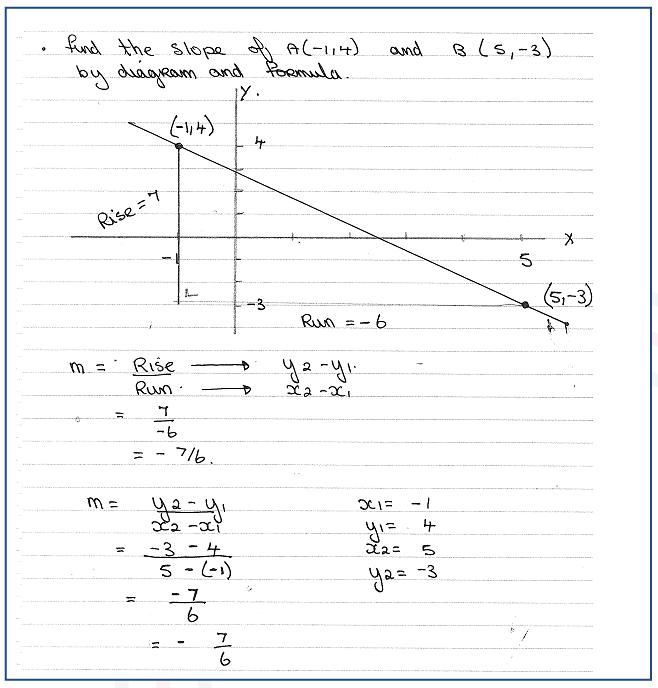 . find the slope of A(-1,4) and B (5,-3)
by diagram and formula.
Y.
(-1,4)
4
Rise = 7
-1
5
X
-3
(5,-3)
Run = -6
m = Rise → y2 - y1.
Run. → x2 - x1
= 7
-6
= - 7/6.
m = y2 - y1
x2 - x1
= -3 - 4
5 - (-1)
= -7
6
= - 7
6
x1 = -1
y1 = 4
x2 = 5
y2 = -3